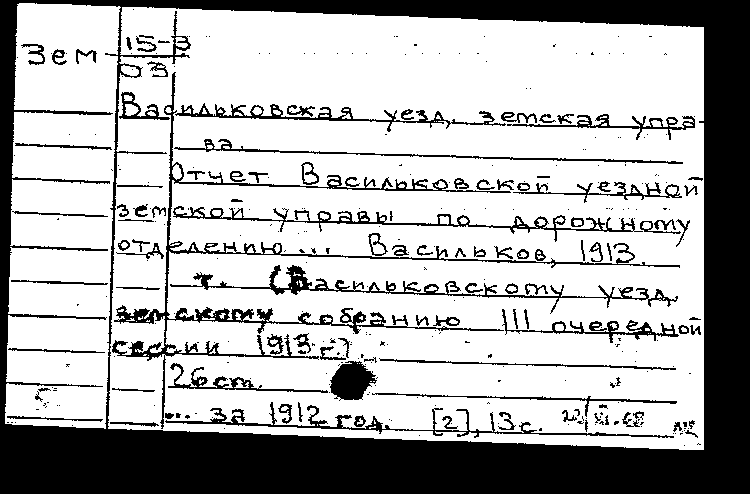 Зем 15-3
03
Васильковская уезд. земская упра-
ва.
Отчет Васильковской уездной
земской управы по дорожному
отделению... Васильков, 1913.
т. (Васильковскому уезд.
земскому собранию III очередной
сессии 1913 г.)
26 ст.
... за 1912 год. [2], 13 с.